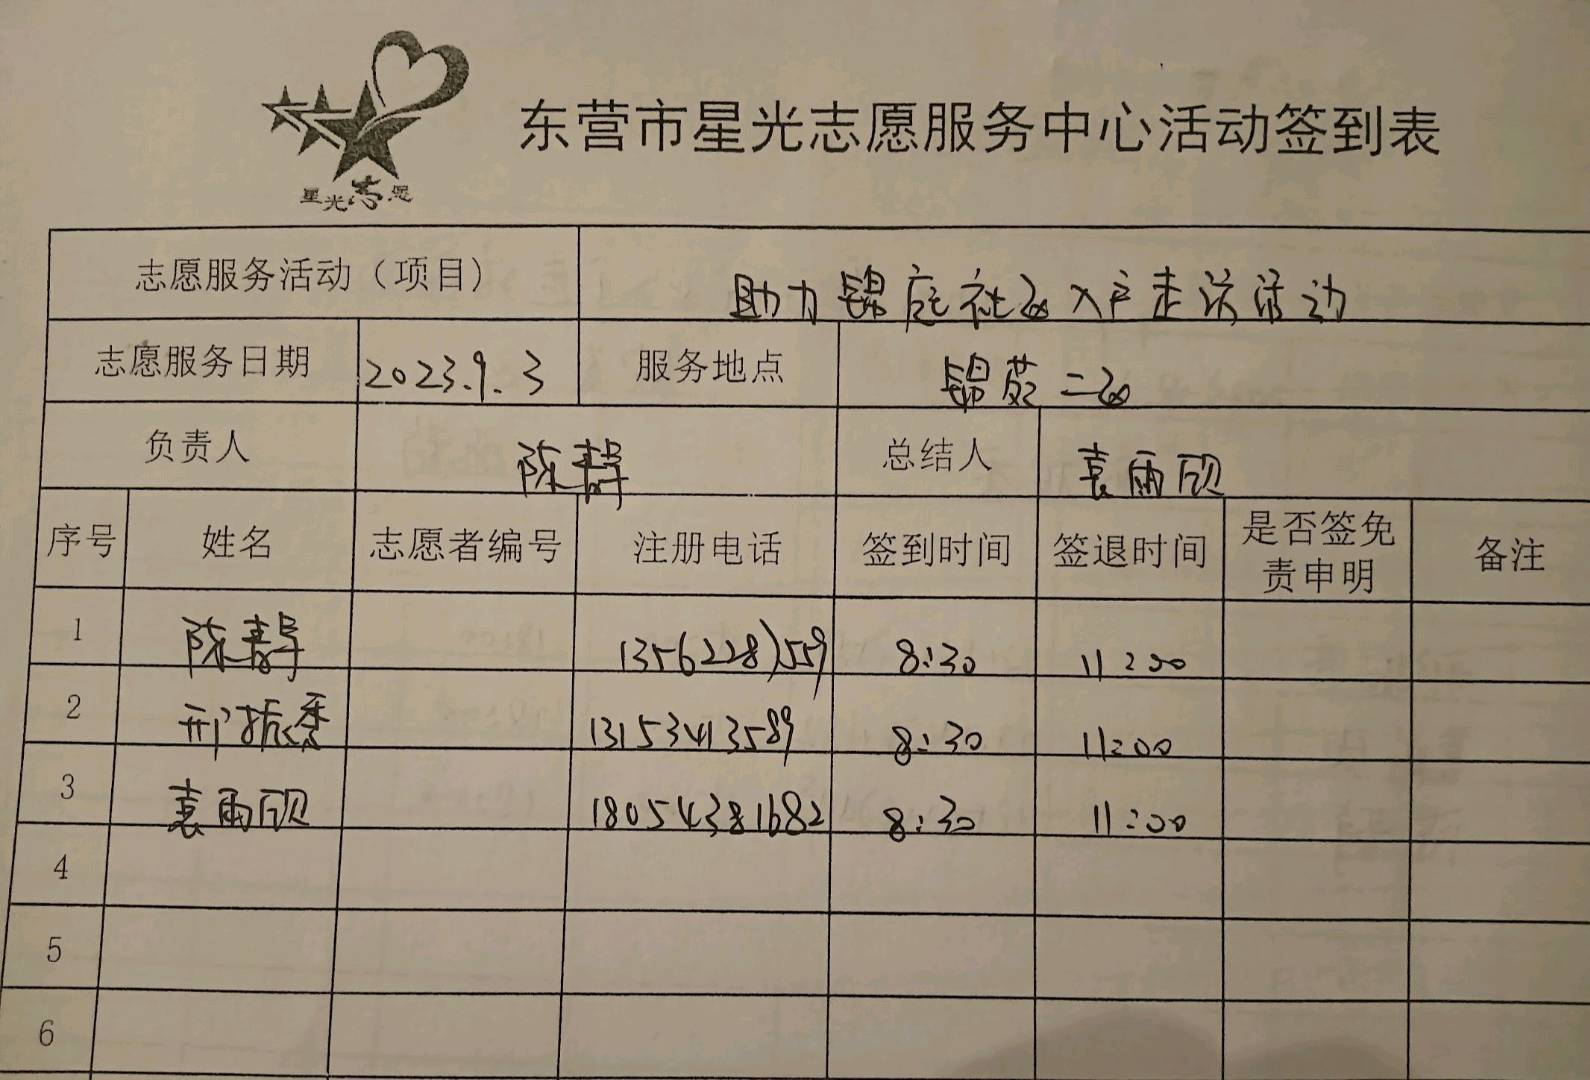 星光志愿
东营市星光志愿服务中心活动签到表
志愿服务活动（项目） 助力锦庭社区入户走访活动
志愿服务日期 2023.9.3 服务地点 锦苑二区
负责人 陈 总结人 袁雨欣
序号 姓名 志愿者编号 注册电话 签到时间 签退时间 是否签免责申明 备注
1 陈 13562287559 8:30 11:00
2 邢振香 13153413589 8:30 11:00
3 袁雨欣 18054381682 8:30 11:00
4
5
6